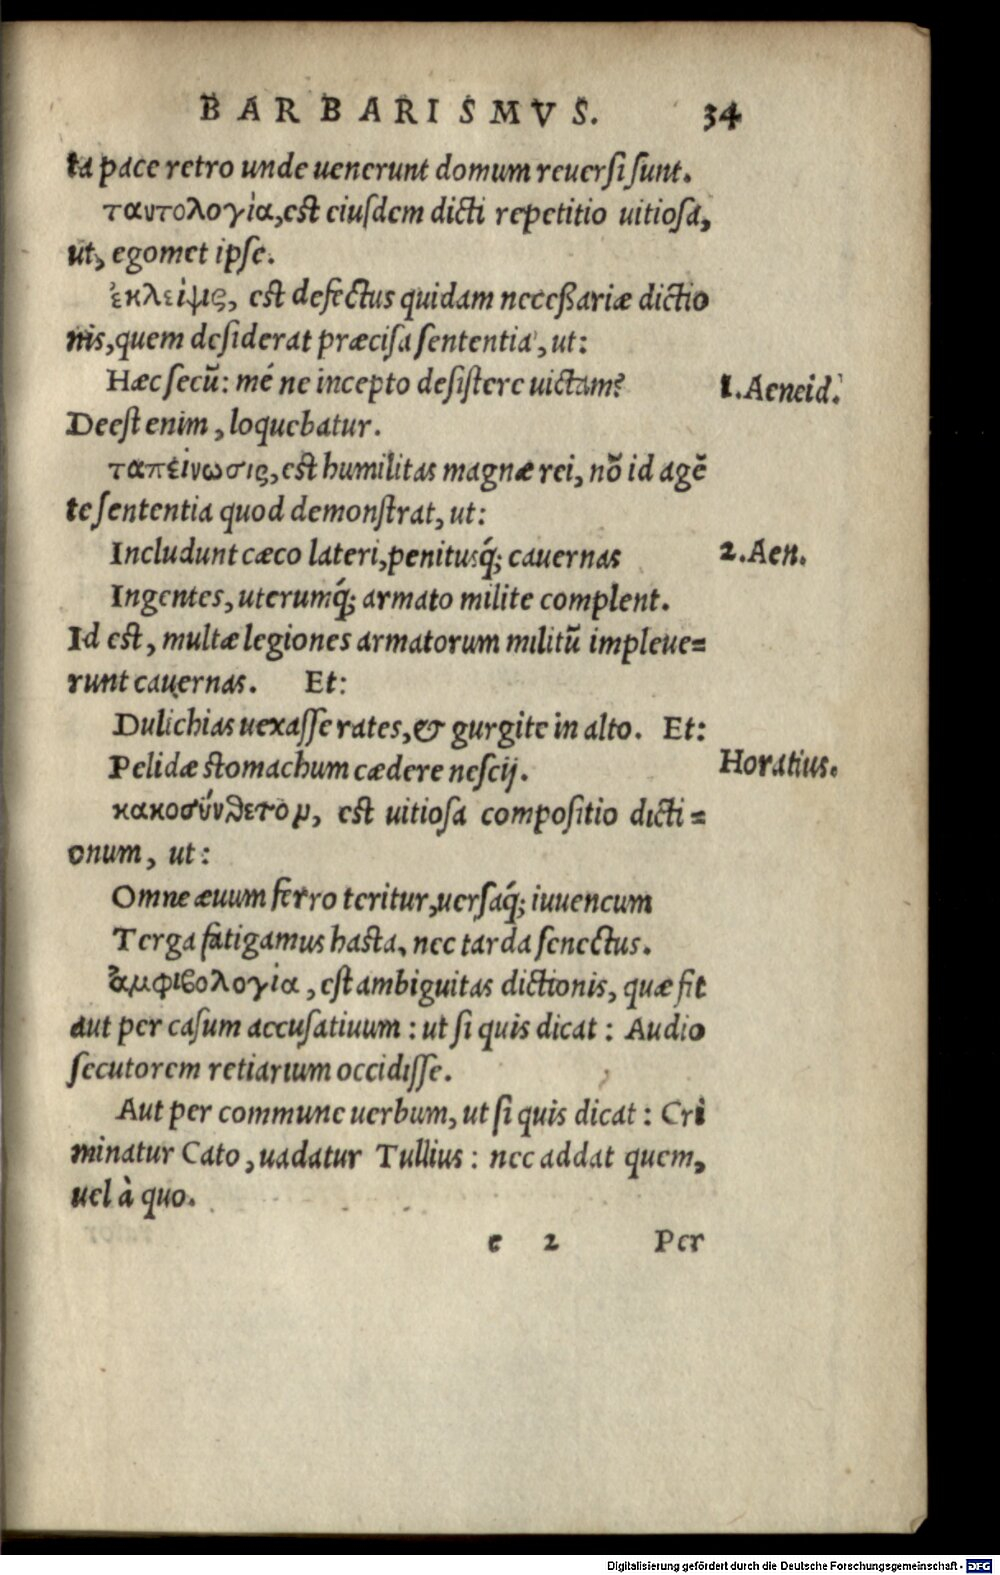 BARBARISMVS. 34
ta pace retro unde uenerunt domum reuersi sunt.
ταυτολογία, est eiusdem dicti repetitio uitiosa,
ut, egomet ipse.
ἐκλείψις, est defectus quidam necessariæ dictio
nis, quem desiderat præcisa sententia, ut:
Hæc secū: mé ne incepto desistere uictam? 1.Aeneid.
Deest enim, loquebatur.
ταπείνωσις, est humilitas magnæ rei, nō id agē
te sententia quod demonstrat, ut:
Includunt cæco lateri, penitusq́; cauernas 2.Aen.
Ingentes, uterumq́; armato milite complent.
Id est, multæ legiones armatorum militū impleue=
runt cauernas. Et:
Dulichias uexasse rates, & gurgite in alto. Et:
Pelidæ stomachum cædere nescij. Horatius.
κακοσύνθετομ, est uitiosa compositio dicti=
onum, ut:
Omne æuum ferro teritur, uersaq́; iuuencum
Terga fatigamus hasta, nec tarda senectus.
ἀμφιβολογία, est ambiguitas dictionis, quæ fit
aut per casum accusatiuum: ut si quis dicat: Audio
secutorem retiarium occidisse.
Aut per commune uerbum, ut si quis dicat: Cri
minatur Cato, uadatur Tullius: nec addat quem,
uel à quo.
e 2 Per
Digitalisierung gefördert durch die Deutsche Forschungsgemeinschaft - DFG